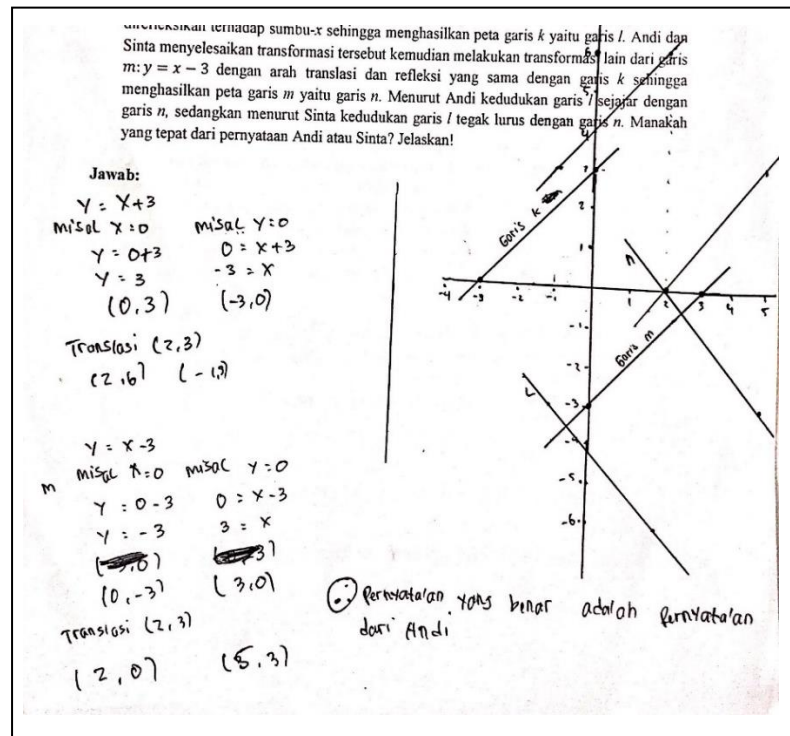 direfleksikan terhadap sumbu-x sehingga menghasilkan peta garis k yaitu garis l. Andi dan
Sinta menyelesaikan transformasi tersebut kemudian melakukan transformasi lain dari garis
m: y = x − 3 dengan arah translasi dan refleksi yang sama dengan garis k sehingga
menghasilkan peta garis m yaitu garis n. Menurut Andi kedudukan garis l sejajar dengan
garis n, sedangkan menurut Sinta kedudukan garis l tegak lurus dengan garis n. Manakah
yang tepat dari pernyataan Andi atau Sinta? Jelaskan!
Jawab:
Y = X+3
misal X=0 misal Y=0
Y = 0+3 0 = X+3
Y = 3 -3 = X
(0,3) (-3,0)
Translasi (2,3)
(2,6) (-1,3)
Y = X-3
m misal X=0 misal Y=0
Y = 0-3 0 = X-3
Y = -3 3 = X
(0,-3) (3,0)
Translasi (2,3)
(2,0) (5,3)
6
5
4
3
2
1
Garis k
n
-4 -3 -2 -1 1 2 3 4 5
-1
-2
-3
-4
-5
-6
Garis m
L
∴ Pernyata'an yang benar adalah Pernyata'an
dari Andi